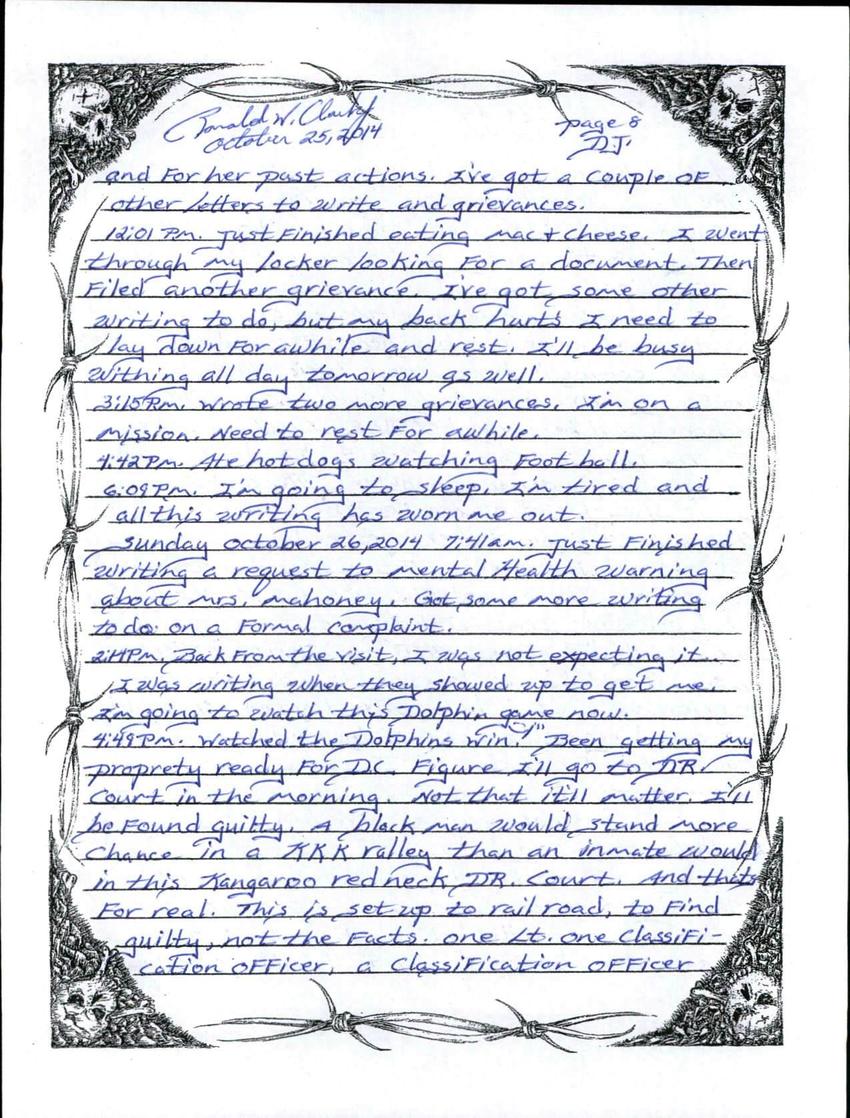 Ronald W. Clark Jr page 8
October 25, 2014 D.J.
and For her past actions. I've got a couple OF
other letters to write and grievances.
12:01 Pm. Just Finished eating mac + cheese. I went
through my locker looking For a document. Then
Filed another grievance. I've got some other
writing to do, but my back hurts I need to
lay down For awhile and rest. I'll be busy
withing all day tomorrow as well.
3:15 Pm. Wrote two more grievances. I'm on a
mission. Need to rest For awhile.
4:42 Pm. Ate hotdogs watching Foot ball.
6:09 Pm. I'm going to sleep. I'm tired and
all this writing has worn me out.
Sunday October 26, 2014 7:41 am. Just Finished
writing a request to mental Health warning
about mrs. mahoney. Got some more writing
to do on a Formal complaint.
Pm. Back From the visit, I was not expecting it..
I was writing when they showed up to get me.
I'm going to watch this Dolphin game now.
4:49 Pm. Watched the Dolphins win!" Been getting my
proprety ready For D.C. Figure I'll go to DR.
Court in the morning. Not that it'll matter. I'll
be Found guilty. A black man would stand more
Chance in a KKK ralley than an inmate would
in this Kangaroo red neck DR. Court. And thats
For real. This is set up to rail road, to Find
guilty, not the Facts. one Lt. one ClassiFi-
cation oFFicer, a ClassiFication oFFicer